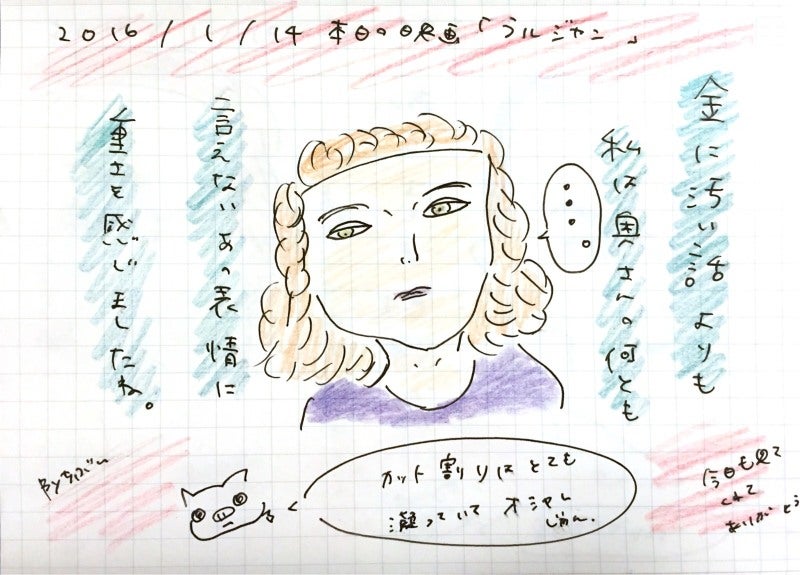 2016/1/14 本日の映画「ラルジャン」
金に汚い話よりも
私は奥さんの何とも
言えないあの表情に
重さを感じましたね。
・・・。
カット割りはとても
凝っていてオシャレ
じゃん。
今日も見て
くれて
ありがとう